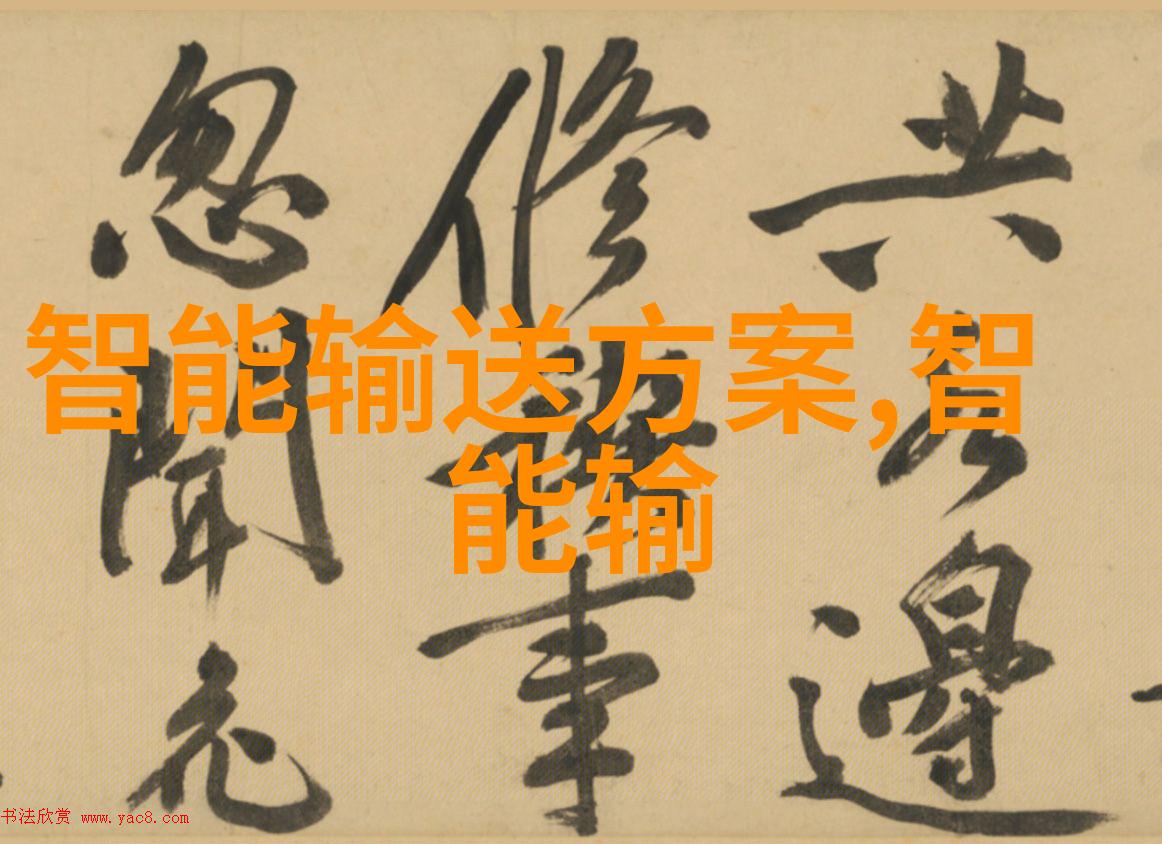 智能输送方案,智
能输
共邊
修禊事
忽聞
书法欣赏 www.yac8.com